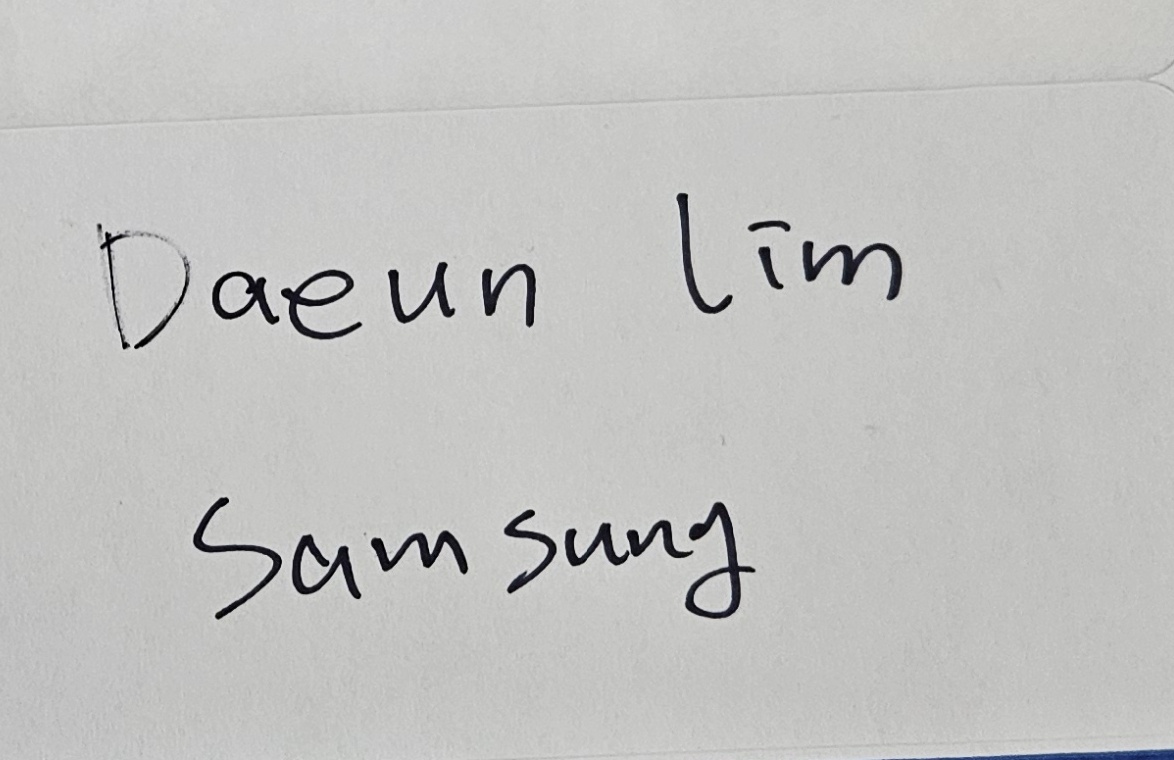 Daeun Lim
Samsung